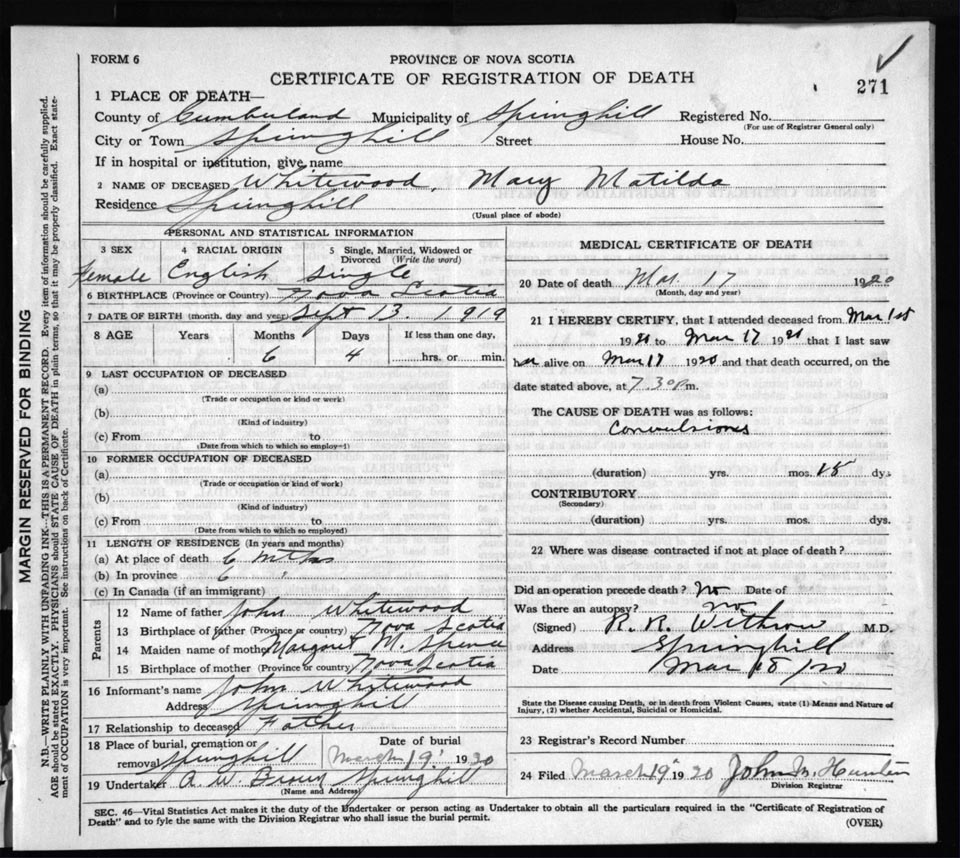 FORM 6
PROVINCE OF NOVA SCOTIA
CERTIFICATE OF REGISTRATION OF DEATH
271
1 PLACE OF DEATH—
County of Cumberland Municipality of Springhill Registered No.
(For use of Registrar General only)
City or Town Springhill Street House No.
If in hospital or institution, give name
2 NAME OF DECEASED Whitewood, Mary Matilda
Residence Springhill
(Usual place of abode)
PERSONAL AND STATISTICAL INFORMATION
3 SEX 4 RACIAL ORIGIN 5 Single, Married, Widowed or Divorced (Write the word)
Female English Single
6 BIRTHPLACE (Province or Country) Nova Scotia
7 DATE OF BIRTH (month, day and year) Sept 13. 1919
8 AGE Years Months Days If less than one day,
6 4 hrs. or min.
9 LAST OCCUPATION OF DECEASED
(a)
(Trade or occupation or kind or work)
(b)
(Kind of industry)
(c) From to
(Date from which to which so employed)
10 FORMER OCCUPATION OF DECEASED
(a)
(Trade or occupation or kind of work)
(b)
(Kind of industry)
(c) From to
(Date from which to which so employed)
11 LENGTH OF RESIDENCE (In years and months)
(a) At place of death 6 mths
(b) In province 6 "
(c) In Canada (if an immigrant)
Parents
12 Name of father John Whitewood
13 Birthplace of father (Province or country) Nova Scotia
14 Maiden name of mother Margaret M. Spence
15 Birthplace of mother (Province or country) Nova Scotia
16 Informant's name John Whitewood
Address Springhill
17 Relationship to deceased Father
18 Place of burial, cremation or removal Springhill
Date of burial
March 19, 1920
19 Undertaker A. W. Brown Springhill
(Name and Address)
MEDICAL CERTIFICATE OF DEATH
20 Date of death Mar 17 1920
(Month, day and year)
21 I HEREBY CERTIFY, that I attended deceased from Mar 1st
1920 to Mar 17 1920 that I last saw
her alive on Mar 17 1920 and that death occurred, on the
date stated above, at 7.30 p.m.
The CAUSE OF DEATH was as follows:
Convulsions
(duration) yrs. mos. 15 dys.
CONTRIBUTORY
(Secondary)
(duration) yrs. mos. dys.
22 Where was disease contracted if not at place of death?
Did an operation precede death? No Date of
Was there an autopsy? no
(Signed) R. R. Withrow M.D.
Address Springhill
Date Mar 18/20
State the Disease causing Death, or in death from Violent Causes, state (1) Means and Nature of
Injury, (2) whether Accidental, Suicidal or Homicidal.
23 Registrar's Record Number
24 Filed March 19" 1920 John M. Hunter
Division Registrar
SEC. 46—Vital Statistics Act makes it the duty of the Undertaker or person acting as Undertaker to obtain all the particulars required in the "Certificate of Registration of
Death" and to fyle the same with the Division Registrar who shall issue the burial permit.
(OVER)
MARGIN RESERVED FOR BINDING
N.B.—WRITE PLAINLY WITH UNFADING INK—THIS IS A PERMANENT RECORD. Every item of information should be carefully supplied.
AGE should be stated EXACTLY. PHYSICIANS should STATE CAUSE OF DEATH in plain terms, so that it may be properly classified. Exact state-
ment of OCCUPATION is very important. See instructions on back of Certificate.